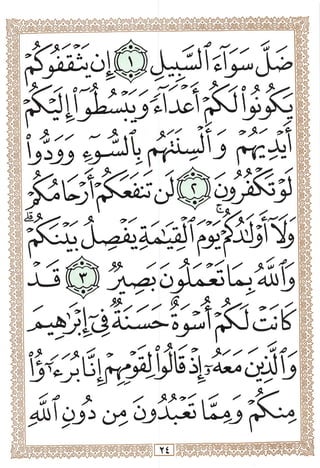 ضَلَّ سَوَآءَ ٱلسَّبِيلِ ١ إِن يَثْقَفُوكُمْ
يَكُونُوا۟ لَكُمْ أَعْدَآءً وَيَبْسُطُوٓا۟ إِلَيْكُمْ
أَيْدِيَهُمْ وَأَلْسِنَتَهُم بِٱلسُّوٓءِ وَوَدُّوا۟
لَوْ تَكْفُرُونَ ٢ لَن تَنفَعَكُمْ أَرْحَامُكُمْ
وَلَآ أَوْلَٰدُكُمْ ۚ يَوْمَ ٱلْقِيَٰمَةِ يَفْصِلُ بَيْنَكُمْ ۚ
وَٱللَّهُ بِمَا تَعْمَلُونَ بَصِيرٌ ٣ قَدْ
كَانَتْ لَكُمْ أُسْوَةٌ حَسَنَةٌ فِىٓ إِبْرَٰهِيمَ
وَٱلَّذِينَ مَعَهُۥٓ إِذْ قَالُوا۟ لِقَوْمِهِمْ إِنَّا بُرَءَٰٓؤُا۟
مِنكُمْ وَمِمَّا تَعْبُدُونَ مِن دُونِ ٱللَّهِ
٢٤